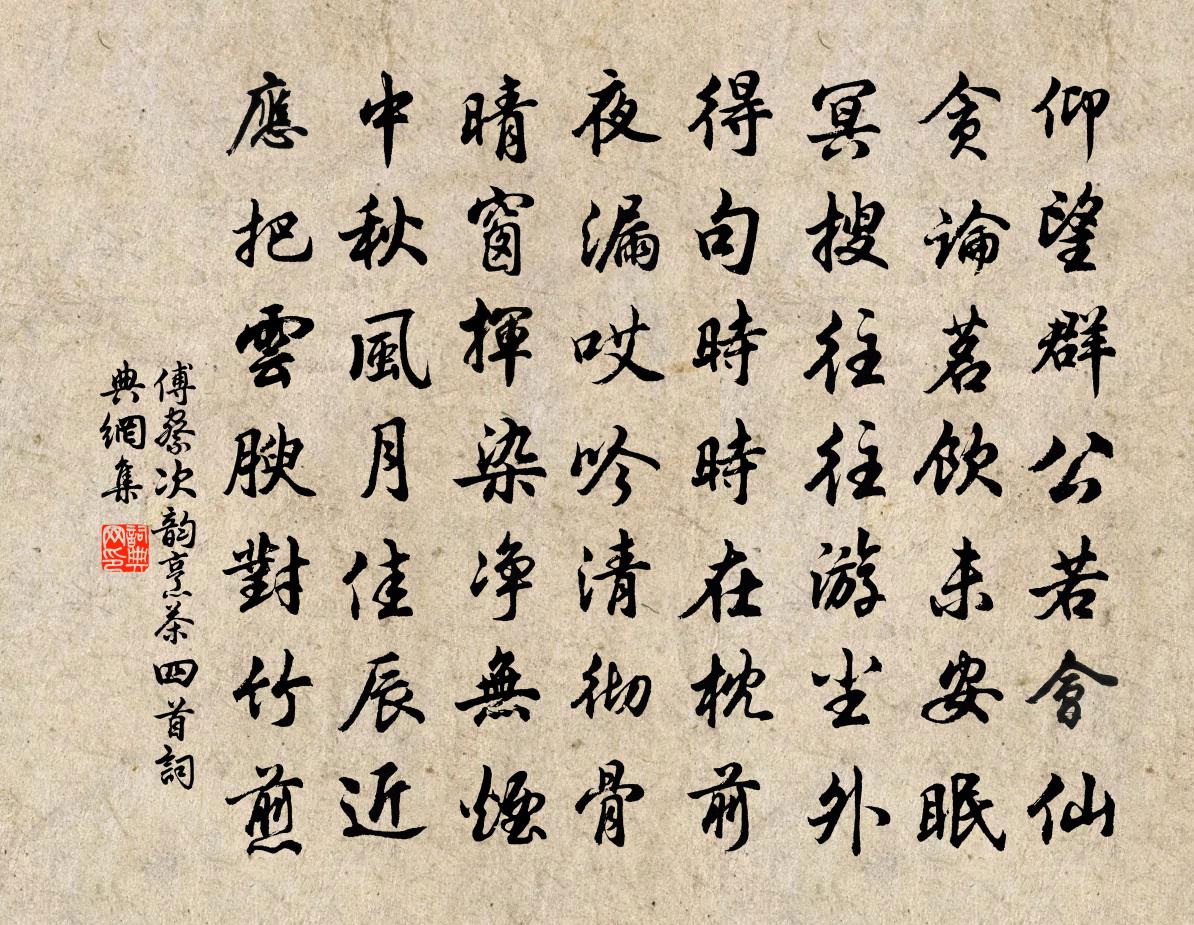 仰望群公若會仙
貪論茗飲未安眠
冥搜往往游尘外
得句時時在枕前
夜漏哎吟清彻骨
晴窗揮染净無煙
中秋風月佳辰近
應把雲腴對竹煎
傅察次韵亨茶四首詞
典網集
詞典
网印